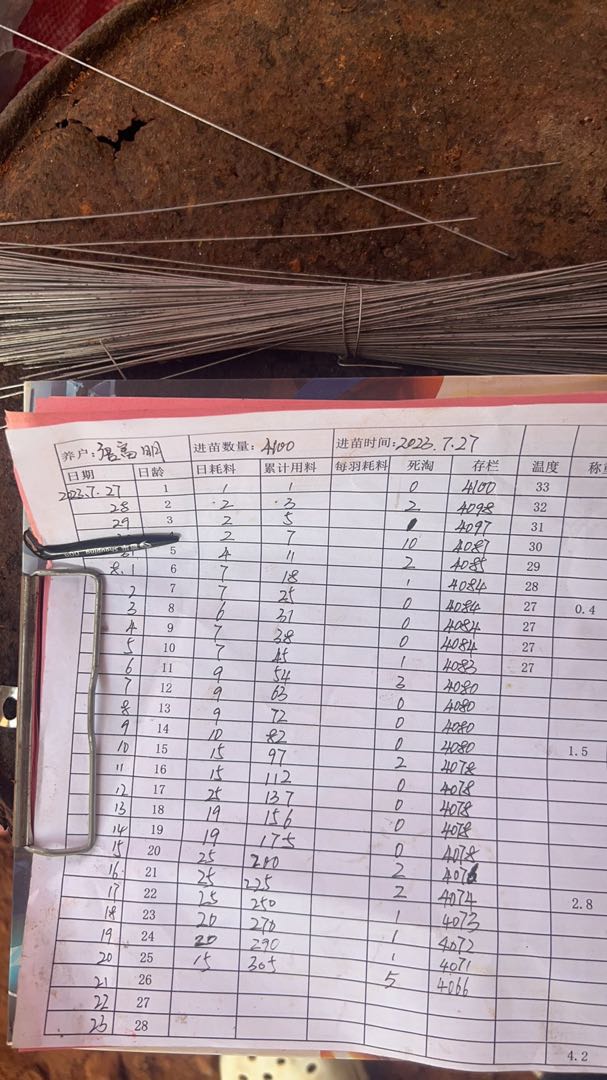 养户: 富明 进苗数量: 4100 进苗时间: 2023.7.27
日期 日龄 日耗料 累计用料 每羽耗料 死淘 存栏 温度 称重
2023.7.27 1 1 1 0 4100 33
28 2 2 3 2 4098 32
29 3 2 5 4097 31
2 7 10 4087 30
5 4 11 2 4085 29
8.1 6 7 18 1 4084 28
2 7 7 25 0 4084 27 0.4
3 8 6 31 0 4084 27
4 9 7 38 0 4084 27
5 10 7 45 1 4083 27
6 11 9 54 3 4080
7 12 9 63 0 4080
8 13 9 72 0 4080
9 14 10 82 0 4080 1.5
10 15 15 97 2 4078
11 16 15 112 0 4078
12 17 25 137 0 4078
13 18 19 156 0 4078
14 19 19 175 0 4078
15 20 25 200 2 4076
16 21 25 225 2 4074 2.8
17 22 25 250 1 4073
18 23 20 270 1 4072
19 24 20 290 1 4071
20 25 15 305 5 4066
21 26
22 27
23 28 4.2